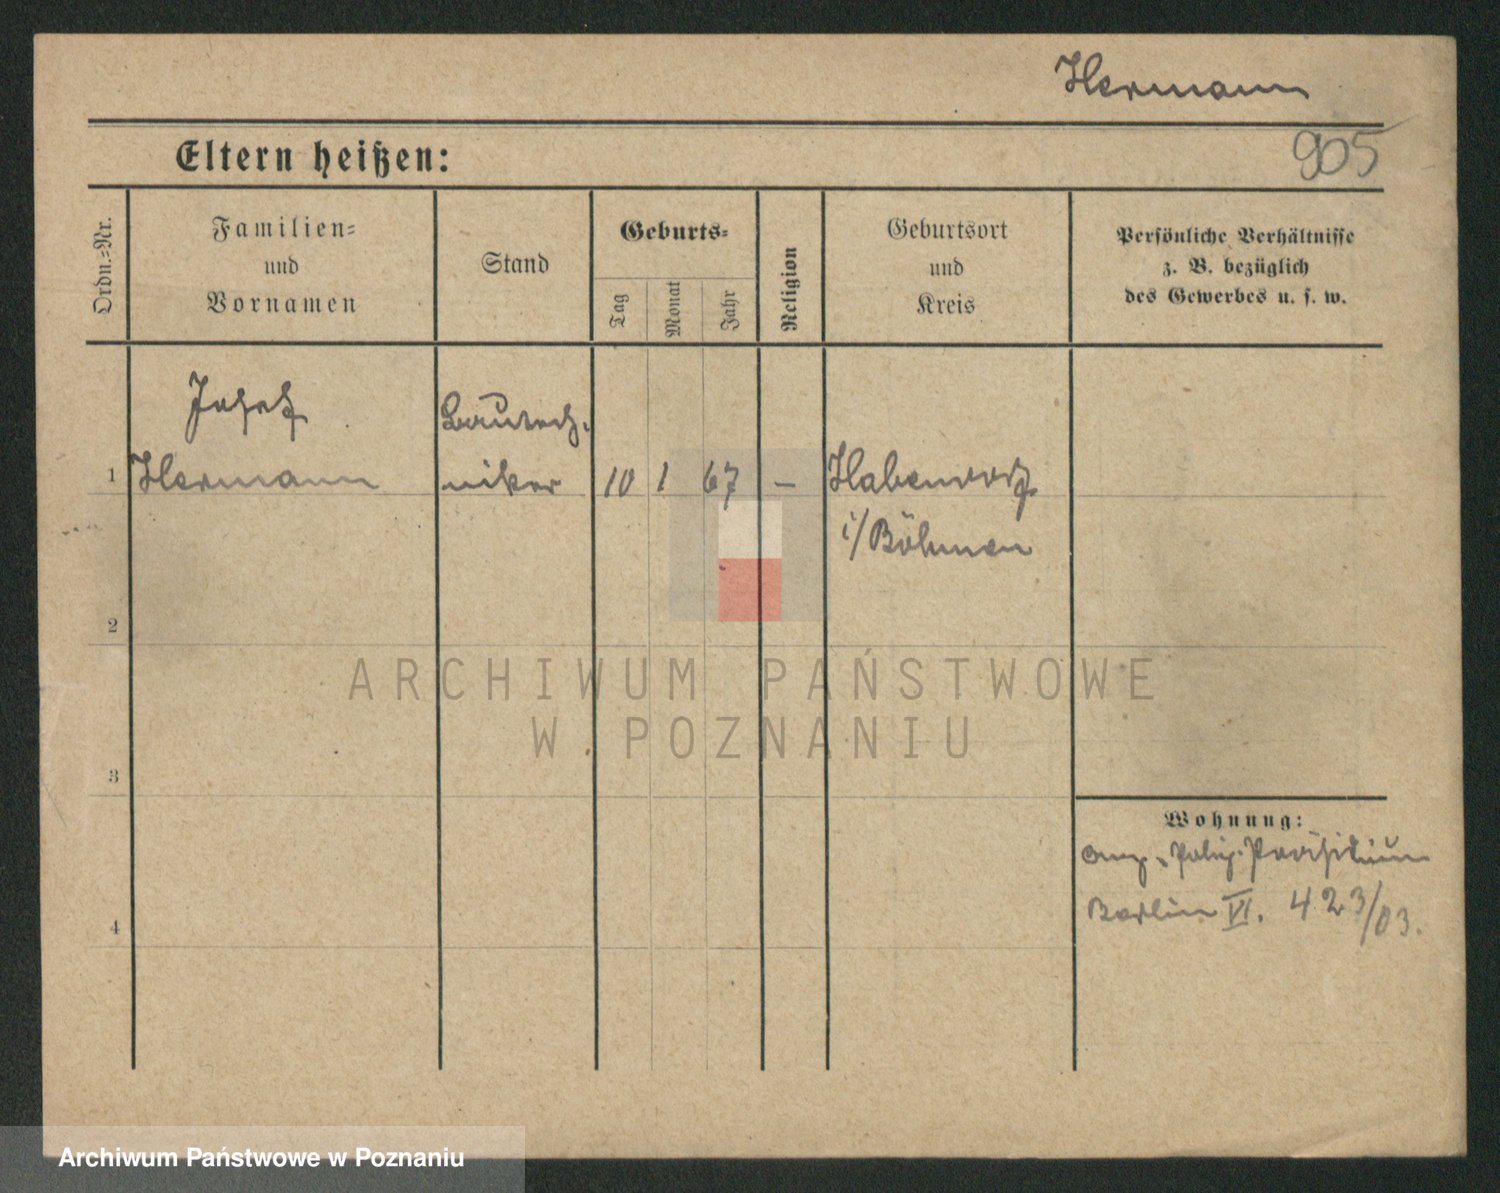 Hermann
905
Eltern heißen:
Ordn.=Nr.
Familien=
und
Vornamen
Stand
Geburts=
Tag
Monat
Jahr
Religion
Geburtsort
und
Kreis
Persönliche Verhältnisse
z. B. bezüglich
des Gewerbes u. s. w.
Josef
Bautech-
1 Hermann niker 10 1 67 –
i/Böhmen
2
ARCHIWUM PAŃSTWOWE
W POZNANIU
3
Wohnung:
Poliz. Präsidium
4
Berlin VI. 423/03.
Archiwum Państwowe w Poznaniu